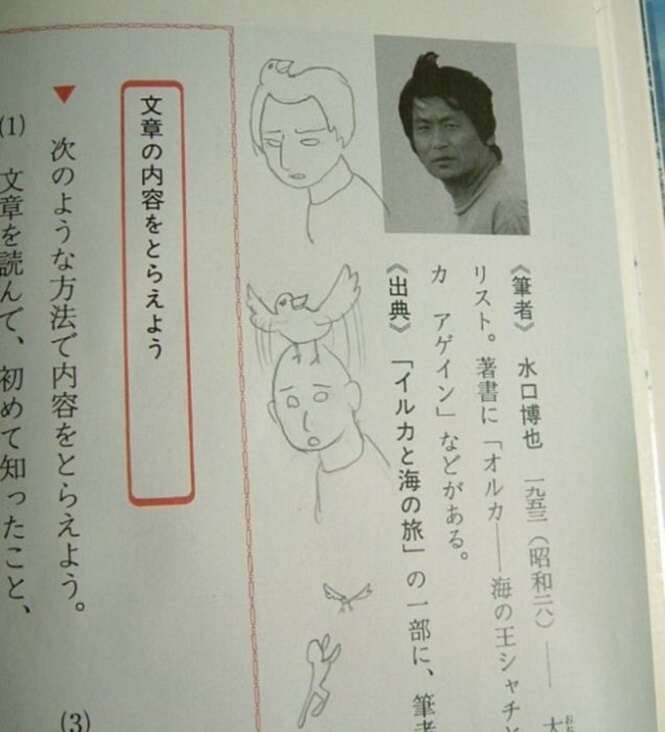 《筆者》 水口博也 一九五三(昭和二八)——
リスト。著書に「オルカ——海の王シャチと
カ アゲイン」などがある。
《出典》 「イルカと海の旅」の一部に、筆者
文章の内容をとらえよう
▼ 次のような方法で内容をとらえよう。
(1) 文章を読んで、初めて知ったこと、
(3)